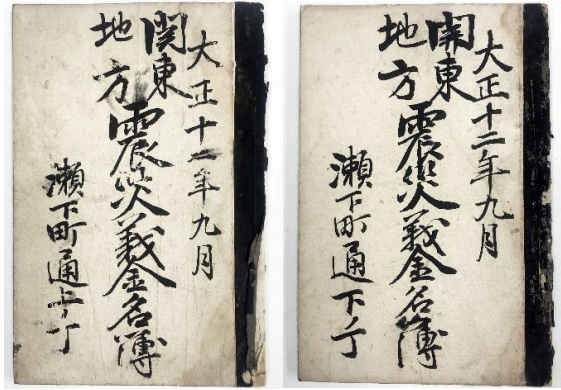 大正十二年九月
関東
地方
震災義金名簿
瀬下町通上ノ丁
大正十二年九月
関東
地方
震災義金名簿
瀬下町通下ノ丁